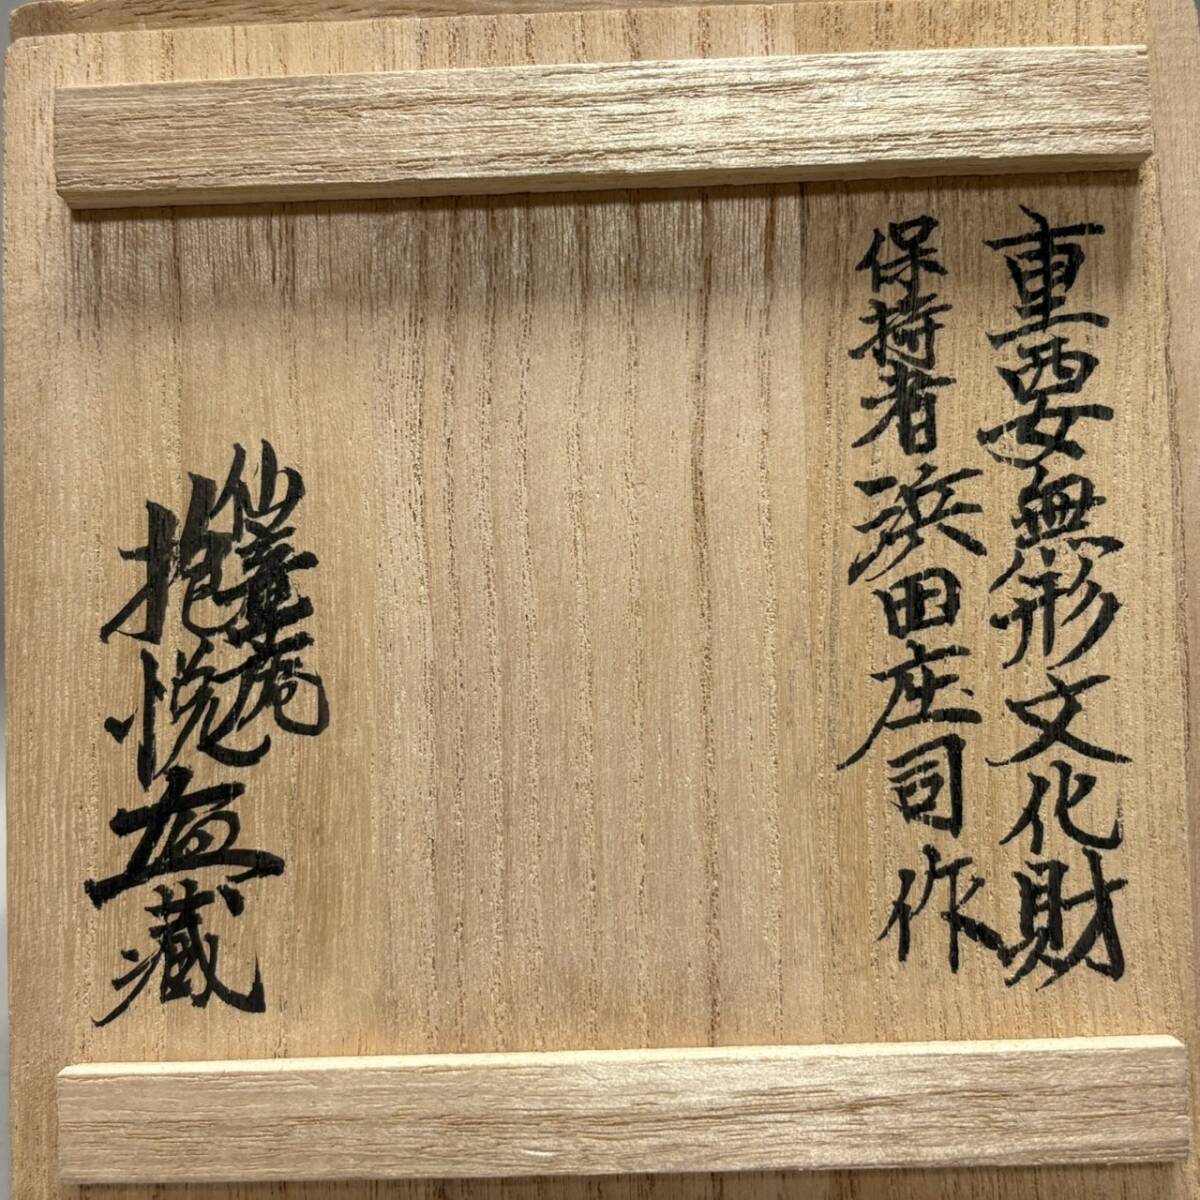 重要無形文化財
保持者浜田庄司作
仙童庵
抱悦盦藏